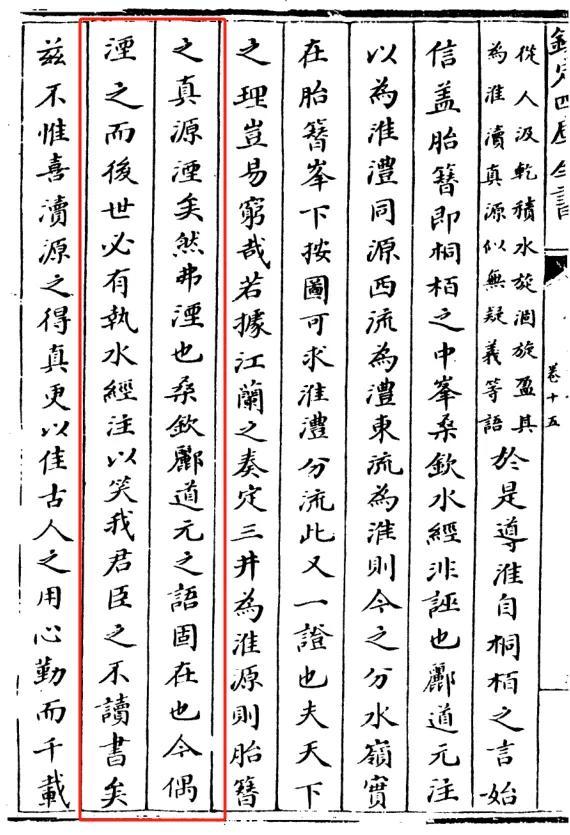 欽定四庫全書
卷十五
從人汲乾積水旋涸旋盈其
為淮瀆真源似無疑義等語
於是導淮自桐栢之言始
信盖胎簪即桐栢之中峯桑欽水經非誣也酈道元注
以為淮澧同源西流為澧東流為淮則今之分水嶺實
在胎簪峯下按圖可求淮澧分流此又一證也夫天下
之理豈易窮哉若據江蘭之奏定三井為淮源則胎簪
之真源湮矣然弗湮也桑欽酈道元之語固在也今偶
湮之而後世必有執水經注以笑我君臣之不讀書矣
兹不惟喜瀆源之得真更以佳古人之用心勤而千載